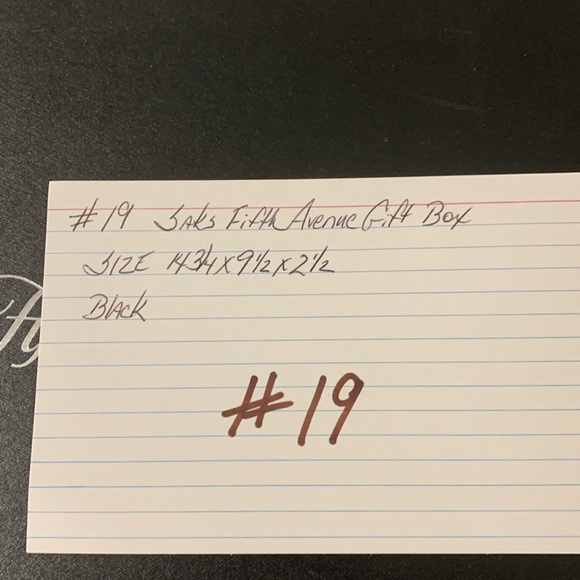 #19 Saks Fifth Avenue Gift Box
SIZE 14 3/4 X 9 1/2 X 2 1/2
Black
#19